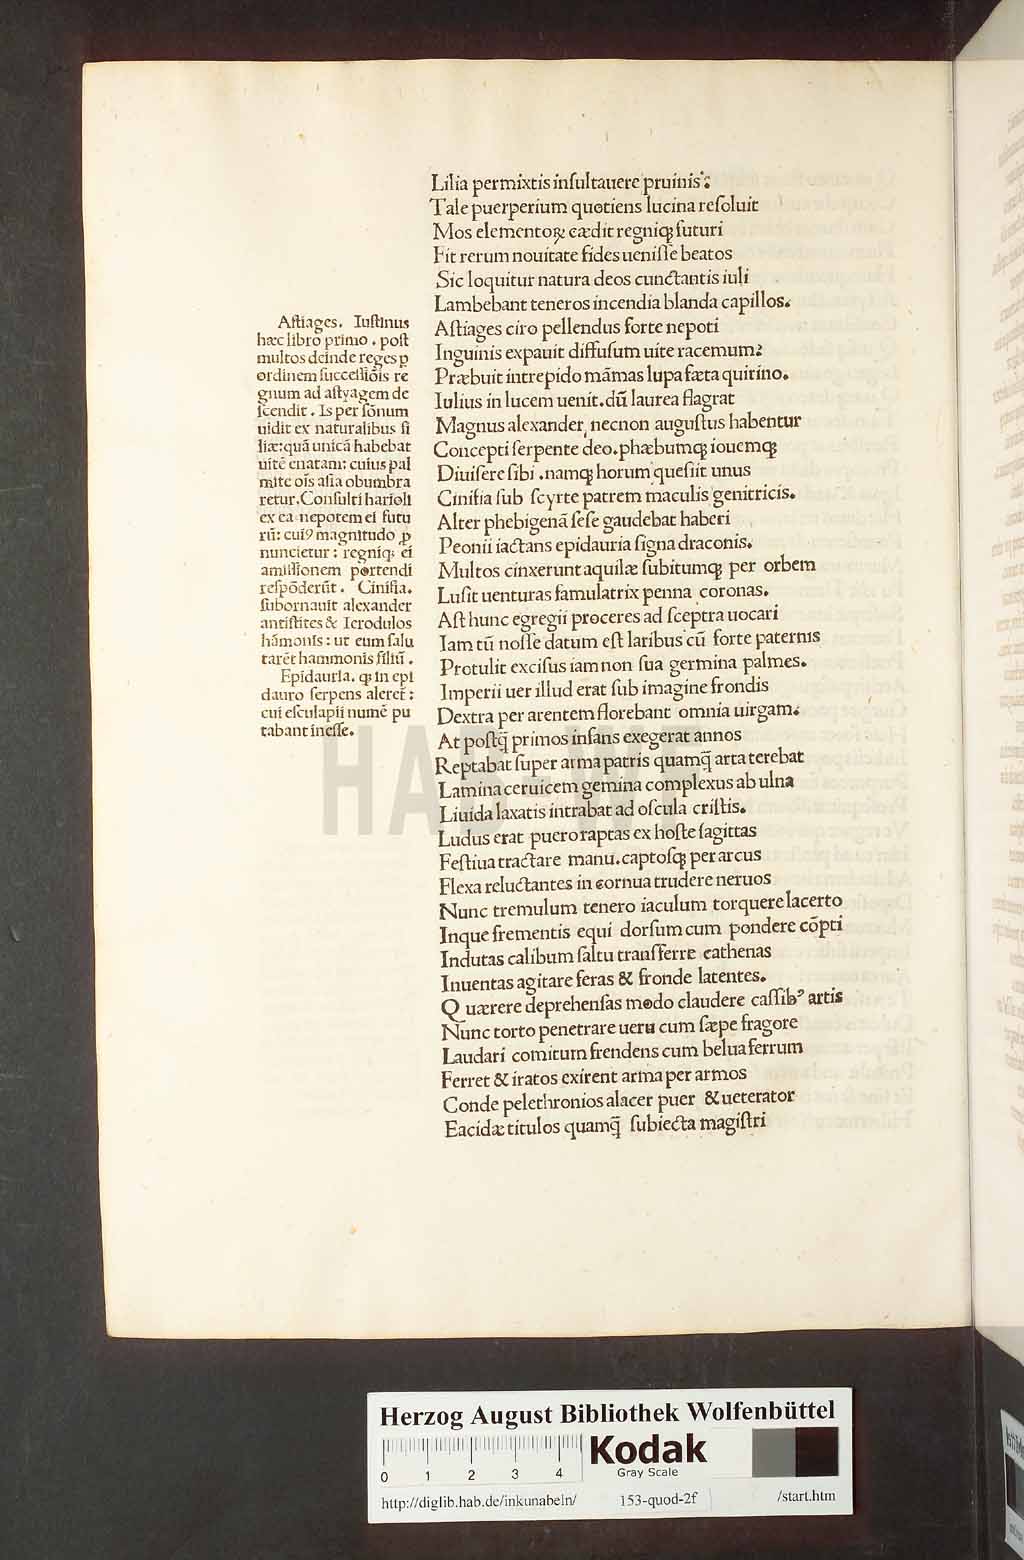 Lilia permixtis inſultauere pruinis:
Tale puerperium quotiens lucina reſoluit
Mos elementoꝝ cædit regniqꝫ futuri
Fit rerum nouitate fides ueniſſe beatos
Sic loquitur natura deos cunctantis iuli
Lambebant teneros incendia blanda capillos.
Aſtiages ciro pellendus forte nepoti
Inguinis expauit diffuſum uite racemum?
Præbuit intrepido mãmas lupa fæta quirino.
Iulius in lucem uenit. dũ laurea flagrat
Magnus alexander, necnon auguſtus habentur
Concepti ſerpente deo. phæbumqꝫ iouemqꝫ
Diuiſere ſibi . namqꝫ horum queſiit unus
Ciniſia ſub ſcyrte patrem maculis genitricis.
Alter phebigenã ſeſe gaudebat haberi
Peonii iactans epidauria ſigna draconis.
Multos cinxerunt aquilæ ſubitumqꝫ per orbem
Luſit uenturas famulatrix penna coronas.
Aſt hunc egregii proceres ad ſceptra uocari
Iam tũ noſſe datum eſt laribus cũ forte paternis
Protulit exciſus iam non ſua germina palmes.
Imperii uer illud erat ſub imagine frondis
Dextra per arentem florebant omnia uirgam:
At poſtq̃ primos infans exegerat annos
Reptabat ſuper arma patris quamq̃ arta terebat
Lamina ceruicem gemina complexus ab ulna
Liuida laxatis intrabat ad oſcula criſtis.
Ludus erat puero raptas ex hoſte ſagittas
Feſtiua tractare manu. captoſqꝫ per arcus
Flexa reluctantes in cornua trudere neruos
Nunc tremulum tenero iaculum torquere lacerto
Inque frementis equi dorſum cum pondere cõpti
Indutas calibum ſaltu tranſferre cathenas
Inuentas agitare feras & fronde latentes.
Quærere deprehenſas modo claudere caſſibꝰ artis
Nunc torto penetrare ueru cum ſæpe fragore
Laudari comitum frendens cum belua ferrum
Ferret & iratos exirent arma per armos
Conde pelethronios alacer puer & ueterator
Eacidæ titulos quamq̃ ſubiecta magiſtri
Aſtiages. Iuſtinus
hæc libro primo . poſt
multos deinde reges ꝑ
ordinem ſucceſſiõis re
gnum ad aſtyagem de
ſcendit . Is per ſõnum
uidit ex naturalibus fi
liæ: quã unicã habebat
uitẽ enatam: cuius pal
mite oĩs aſia obumbra
retur. Conſulti harioli
ex ea nepotem ei futu
rũ: cuiꝰ magnitudo ꝓ
nuncietur : regniqꝫ ei
amiſſionem portendi
reſpõderũt . Ciniſia.
ſubornauit alexander
antiſtites & Icrodulos
hãmonis : ut eum ſalu
tarẽt hammonis filiũ .
Epidauria. qꝫ in epi
dauro ſerpens aleret̃ :
cui eſculapii numẽ pu
tabant ineſſe.
HAB-WF
Herzog August Bibliothek Wolfenbüttel
0 1 2 3 4
Kodak
Gray Scale
http://diglib.hab.de/inkunabeln/ 153-quod-2f /start.htm